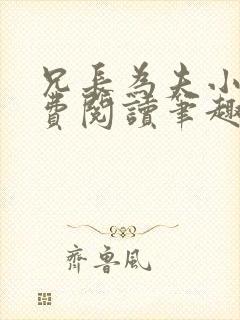 兄長為夫小
費閱讀筆趣
齊魯風